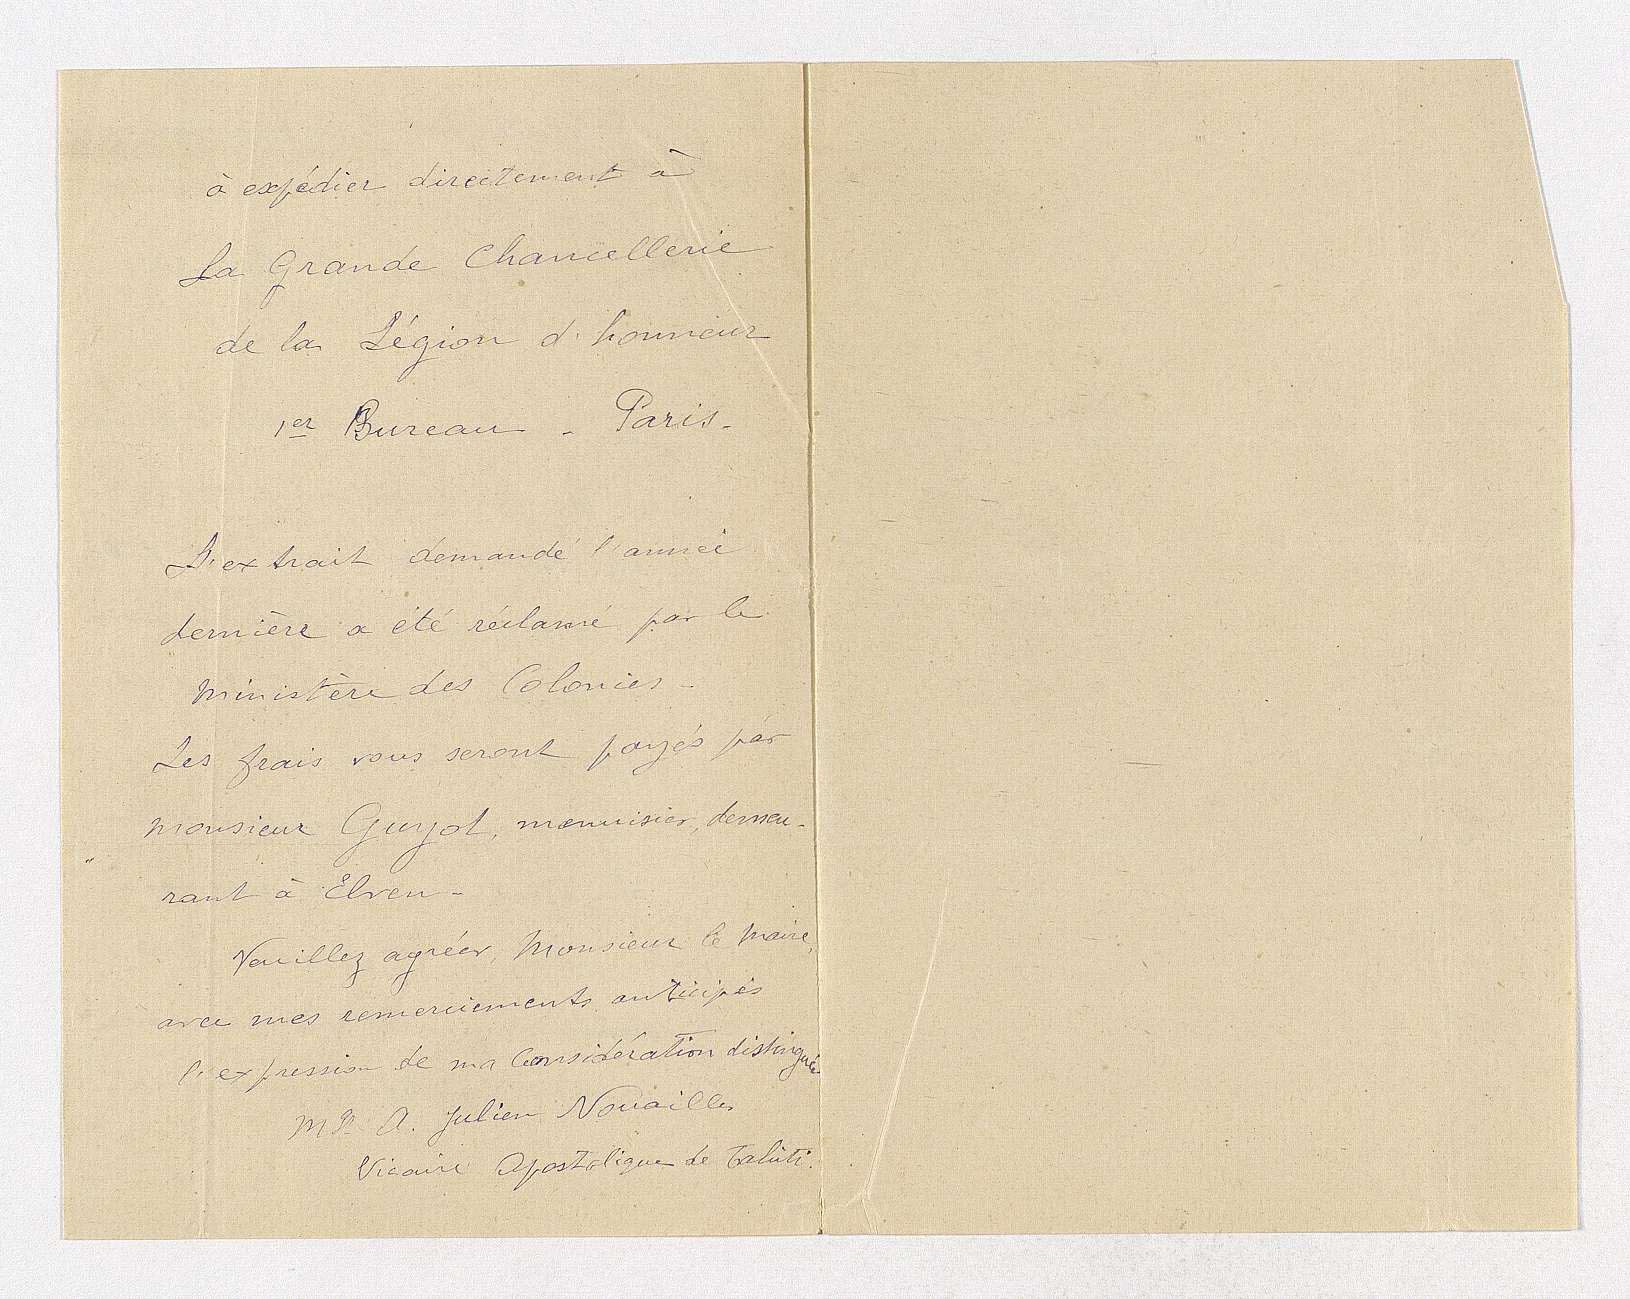 à expédier directement à
La Grande Chancellerie
de la Légion d'honneur
1er Bureau - Paris.
L'extrait demandé l'année
dernière a été réclamé par le
Ministère des Colonies.
Les frais vous seront payés par
monsieur Guyot, menuisier, demeu-
rant à Elven -
Veuillez agréer, Monsieur le Maire,
avec mes remerciements anticipés
l'expression de ma considération distinguée
A. Julien Nouailles
Vicaire Apostolique de Tahiti.